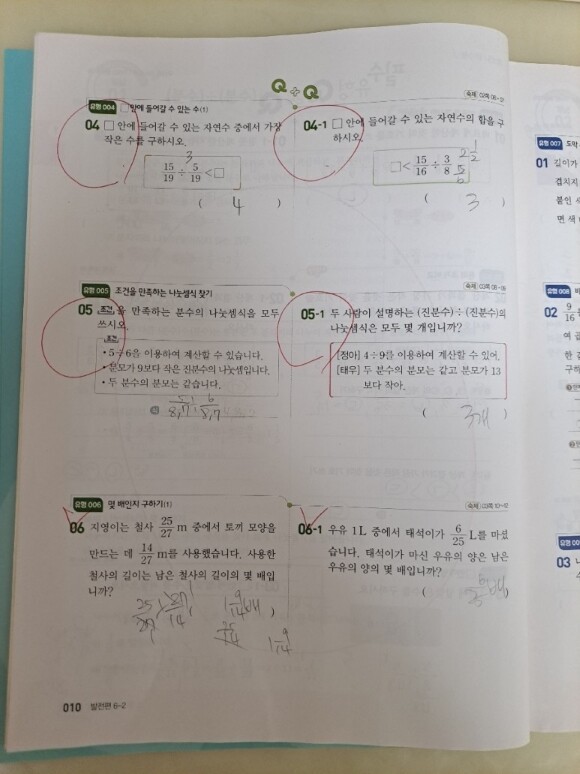 유형 004 □안에 들어갈 수 있는 수(1)
04 □ 안에 들어갈 수 있는 자연수 중에서 가장
작은 수를 구하시오.
3
15/19 ÷ 5/19 < □
( 4 )
숙제
04-1 □ 안에 들어갈 수 있는 자연수의 합을 구
하시오.
2 1/2
□ < 15/16 ÷ 3/8
( 3 )
유형 005 조건을 만족하는 나눗셈식 찾기
05 조건을 만족하는 분수의 나눗셈식을 모두
쓰시오.
조건
• 5÷6을 이용하여 계산할 수 있습니다.
• 분모가 9보다 작은 진분수의 나눗셈입니다.
• 두 분수의 분모는 같습니다.
5/8,7 ÷ 6/8,7
숙제
05-1 두 사람이 설명하는 (진분수)÷(진분수)의
나눗셈식은 모두 몇 개입니까?
[정아] 4÷9를 이용하여 계산할 수 있어.
[태우] 두 분수의 분모는 같고 분모가 13
보다 작아.
( 3개 )
유형 006 몇 배인지 구하기(1)
06 지영이는 철사 25/27 m 중에서 토끼 모양을
만드는 데 14/27 m를 사용했습니다. 사용한
철사의 길이는 남은 철사의 길이의 몇 배입
니까?
25/27 × 27/14
1 9/14 배 )
25/14
1 9/14
숙제
06-1 우유 1 L 중에서 태석이가 6/25 L를 마셨
습니다. 태석이가 마신 우유의 양은 남은
우유의 양의 몇 배입니까?
( 6/25 배 )
010 발전편 6-2
유형 007 도막
01 길이가
겹치지
붙인 색
면 색
유형 008
02 9/16
여 
한 
구하
03